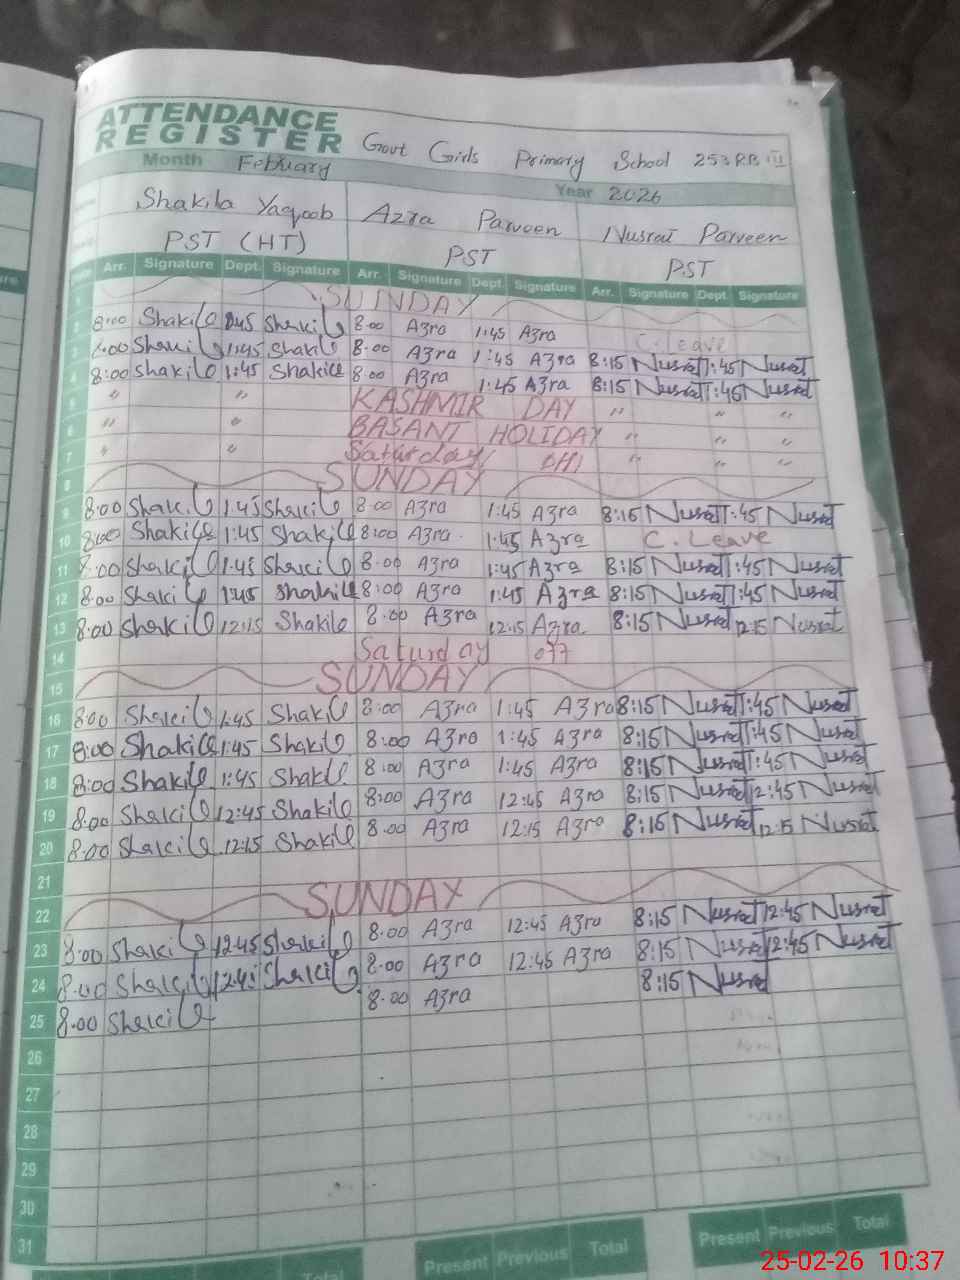 ATTENDANCE
REGISTER Govt Girls Primary School 253 R.B III
Month February Year 2026
Shakila Yaqoob Azra Parveen Nusrat Parveen
PST (HT) PST PST
Arr. Signature Dept. Signature Arr. Signature Dept. Signature Arr. Signature Dept. Signature
1 SUNDAY
2 8:00 Shakila 1:45 Shakila 8:00 Azra 1:45 Azra C. Leave
3 8:00 Shakila 1:45 Shakila 8:00 Azra 1:45 Azra 8:15 Nusrat 1:45 Nusrat
4 8:00 Shakila 1:45 Shakila 8:00 Azra 1:45 Azra 8:15 Nusrat 1:45 Nusrat
5 " " KASHMIR DAY " " "
6 " " BASANT HOLIDAY " " "
7 " " Saturday Off " " "
8 SUNDAY
9 8:00 Shakila 1:45 Shakila 8:00 Azra 1:45 Azra 8:15 Nusrat 1:45 Nusrat
10 8:00 Shakila 1:45 Shakila 8:00 Azra 1:45 Azra C. Leave
11 8:00 Shakila 1:45 Shakila 8:00 Azra 1:45 Azra 8:15 Nusrat 1:45 Nusrat
12 8:00 Shakila 1:45 Shakila 8:00 Azra 1:45 Azra 8:15 Nusrat 1:45 Nusrat
13 8:00 Shakila 12:15 Shakila 8:00 Azra 12:15 Azra 8:15 Nusrat 12:15 Nusrat
14 Saturday off
15 SUNDAY
16 8:00 Shakila 1:45 Shakila 8:00 Azra 1:45 Azra 8:15 Nusrat 1:45 Nusrat
17 8:00 Shakila 1:45 Shakila 8:00 Azra 1:45 Azra 8:15 Nusrat 1:45 Nusrat
18 8:00 Shakila 1:45 Shakila 8:00 Azra 1:45 Azra 8:15 Nusrat 1:45 Nusrat
19 8:00 Shakila 12:45 Shakila 8:00 Azra 12:45 Azra 8:15 Nusrat 12:45 Nusrat
20 8:00 Shakila 12:15 Shakila 8:00 Azra 12:15 Azra 8:15 Nusrat 12:15 Nusrat
21
22 SUNDAY
23 8:00 Shakila 12:45 Shakila 8:00 Azra 12:45 Azra 8:15 Nusrat 12:45 Nusrat
24 8:00 Shakila 12:45 Shakila 8:00 Azra 12:45 Azra 8:15 Nusrat 12:45 Nusrat
25 8:00 Shakila 8:00 Azra 8:15 Nusrat
26
27
28
29
30
31
Total Present Previous Total Present Previous Total
25-02-26 10:37